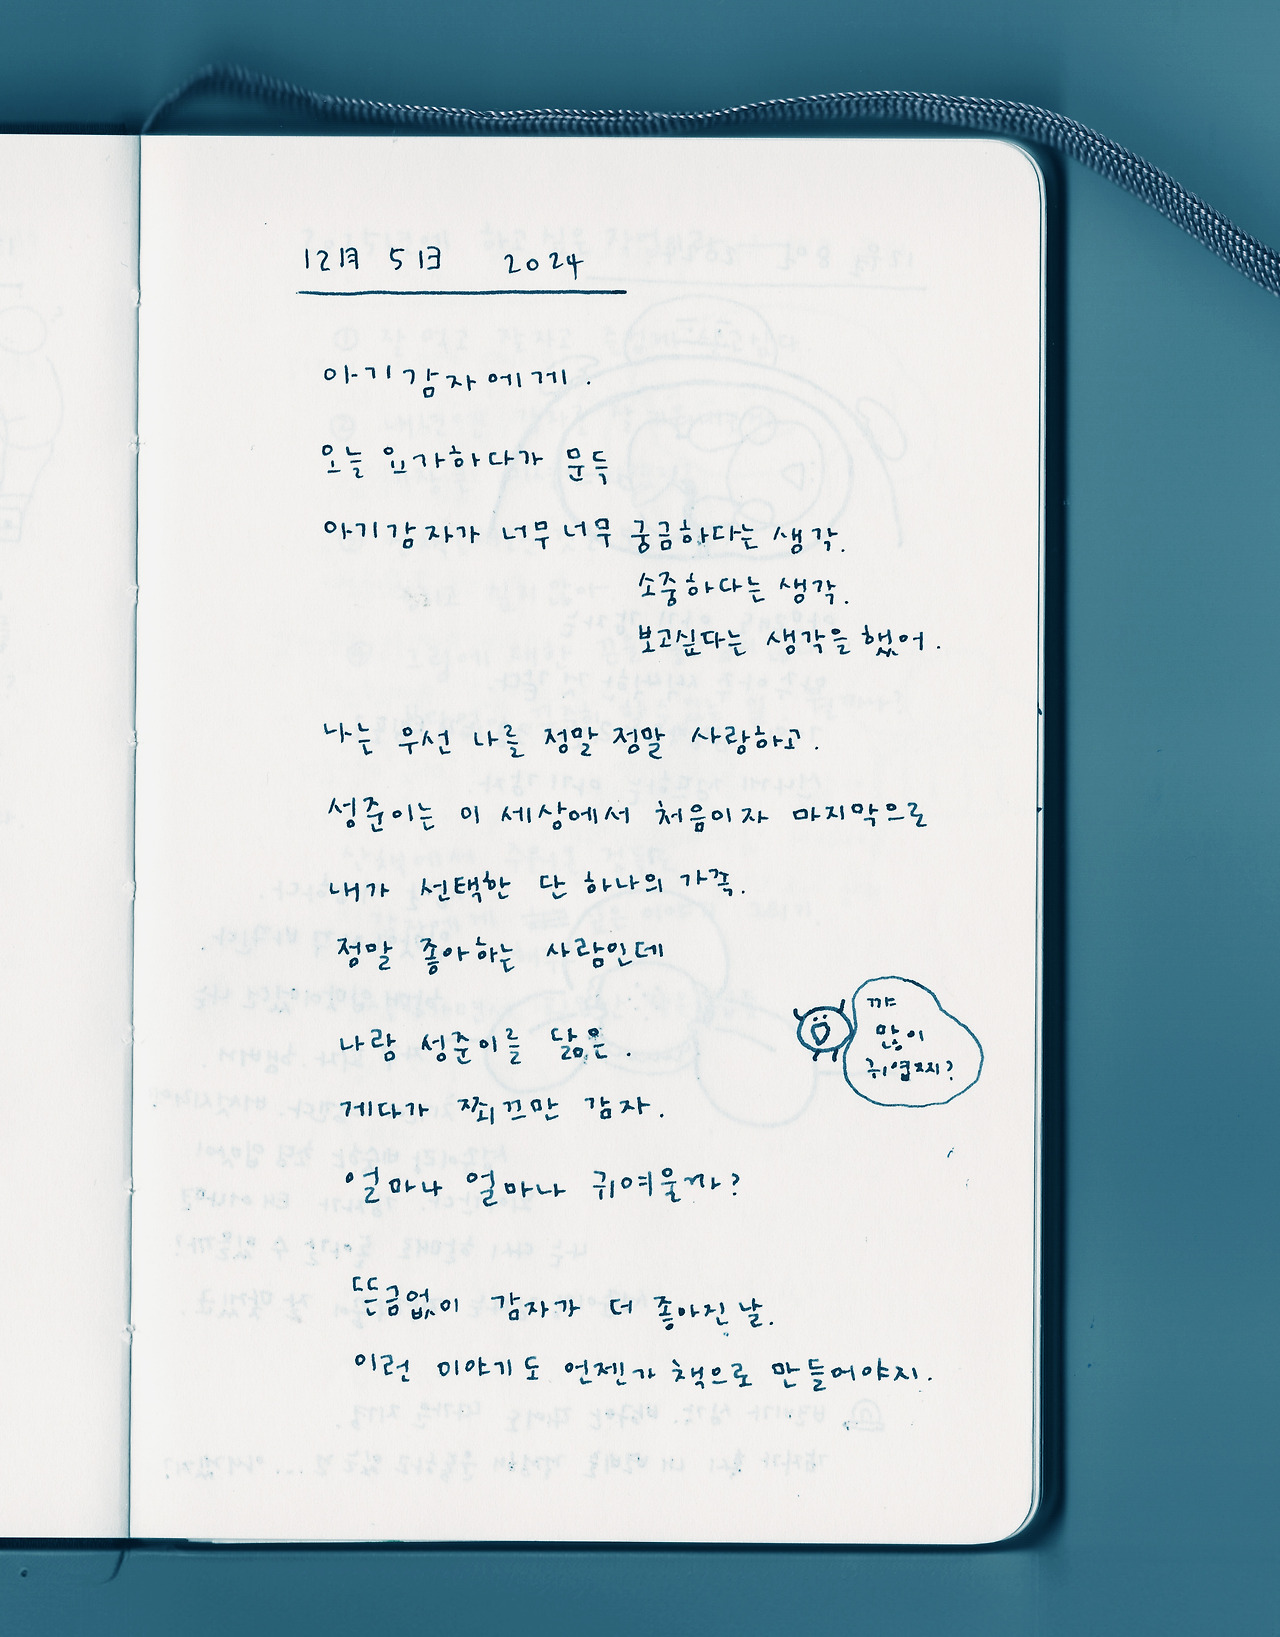 12月 5日 2024
아기감자에게.
오늘 요가하다가 문득
아기감자가 너무너무 궁금하다는 생각.
소중하다는 생각.
보고싶다는 생각을 했어.
나는 우선 나를 정말 정말 사랑하고.
성준이는 이 세상에서 처음이자 마지막으로
내가 선택한 단 하나의 가족.
정말 좋아하는 사람인데
나랑 성준이를 닮은.
게다가 쬐끄만 감자.
얼마나 얼마나 귀여울까?
꺄
많이
귀엽찌?
뜬금없이 감자가 더 좋아진 날.
이런 이야기도 언젠가 책으로 만들어야지.